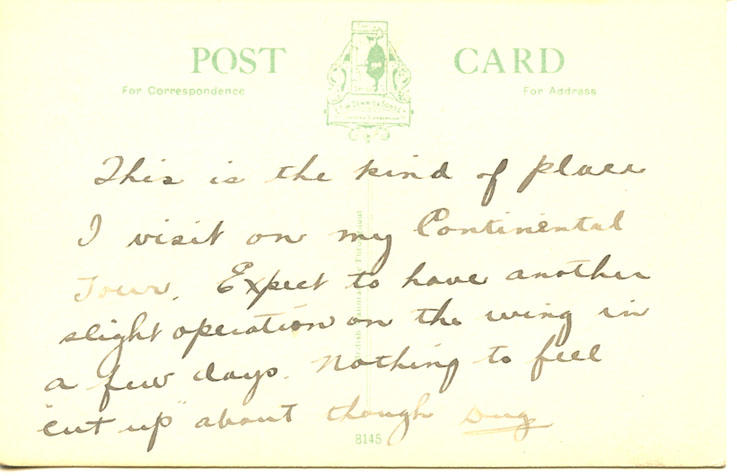 POST CARD
For Correspondence For Address
This is the kind of place
I visit on my Continental
Tour. Expect to have another
slight operation on the wing in
a few days. Nothing to feel
"cut up" about though Dug
8145